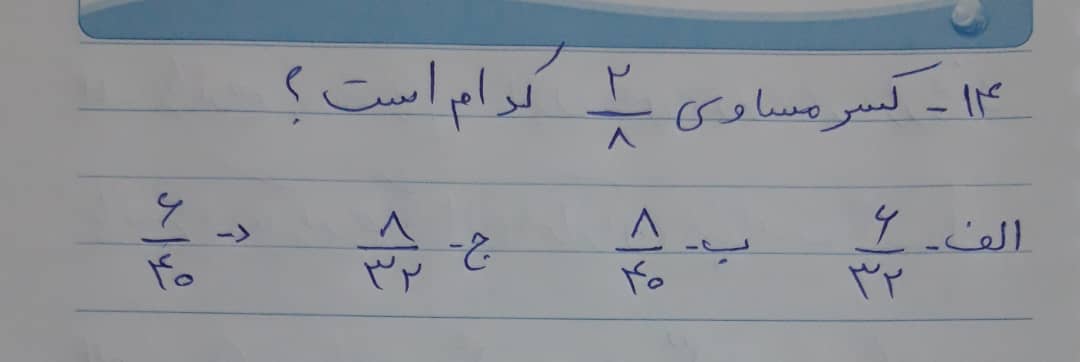 ۱۴- کسر مساوی ۲/۸ کدام است ؟
الف- ۶/۳۲ ب- ۸/۴۰ ج- ۸/۳۲ د- ۶/۴۰